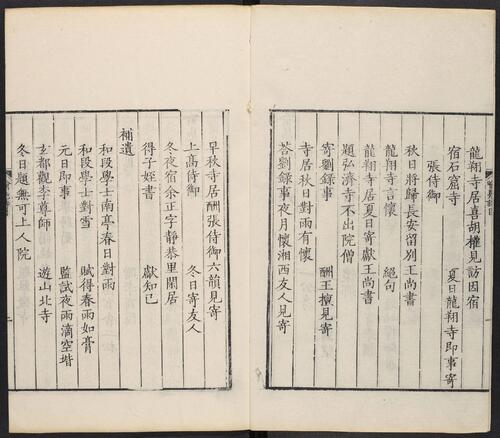 龍翔寺居喜胡權見訪因宿
宿石窟寺 夏日龍翔寺即事寄
張侍御
秋日將歸長安留別王尚書
龍翔寺言懷 絕句
龍翔寺居夏日寄獻王尚書
題弘濟寺不出院僧
寄劉錄事 酬王檀見寄
寺居秋日對雨有懷
荅劉錄事夜月懷湘西友人見寄
早秋寺居酬張侍御六韻見寄
上高侍御 冬日寄友人
冬夜宿余正字靜恭里閑居
得子姪書 獻知已
補遺
和段學士南亭春日對雨
和段學士對雪 賦得春雨如膏
元日即事 監試夜雨滴空堦
玄都觀李尊師 遊山北寺
冬日題無可上人院